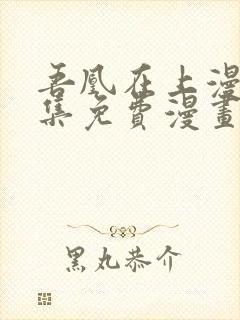 吾凰在上漫
集免費漫畫
黑丸恭介